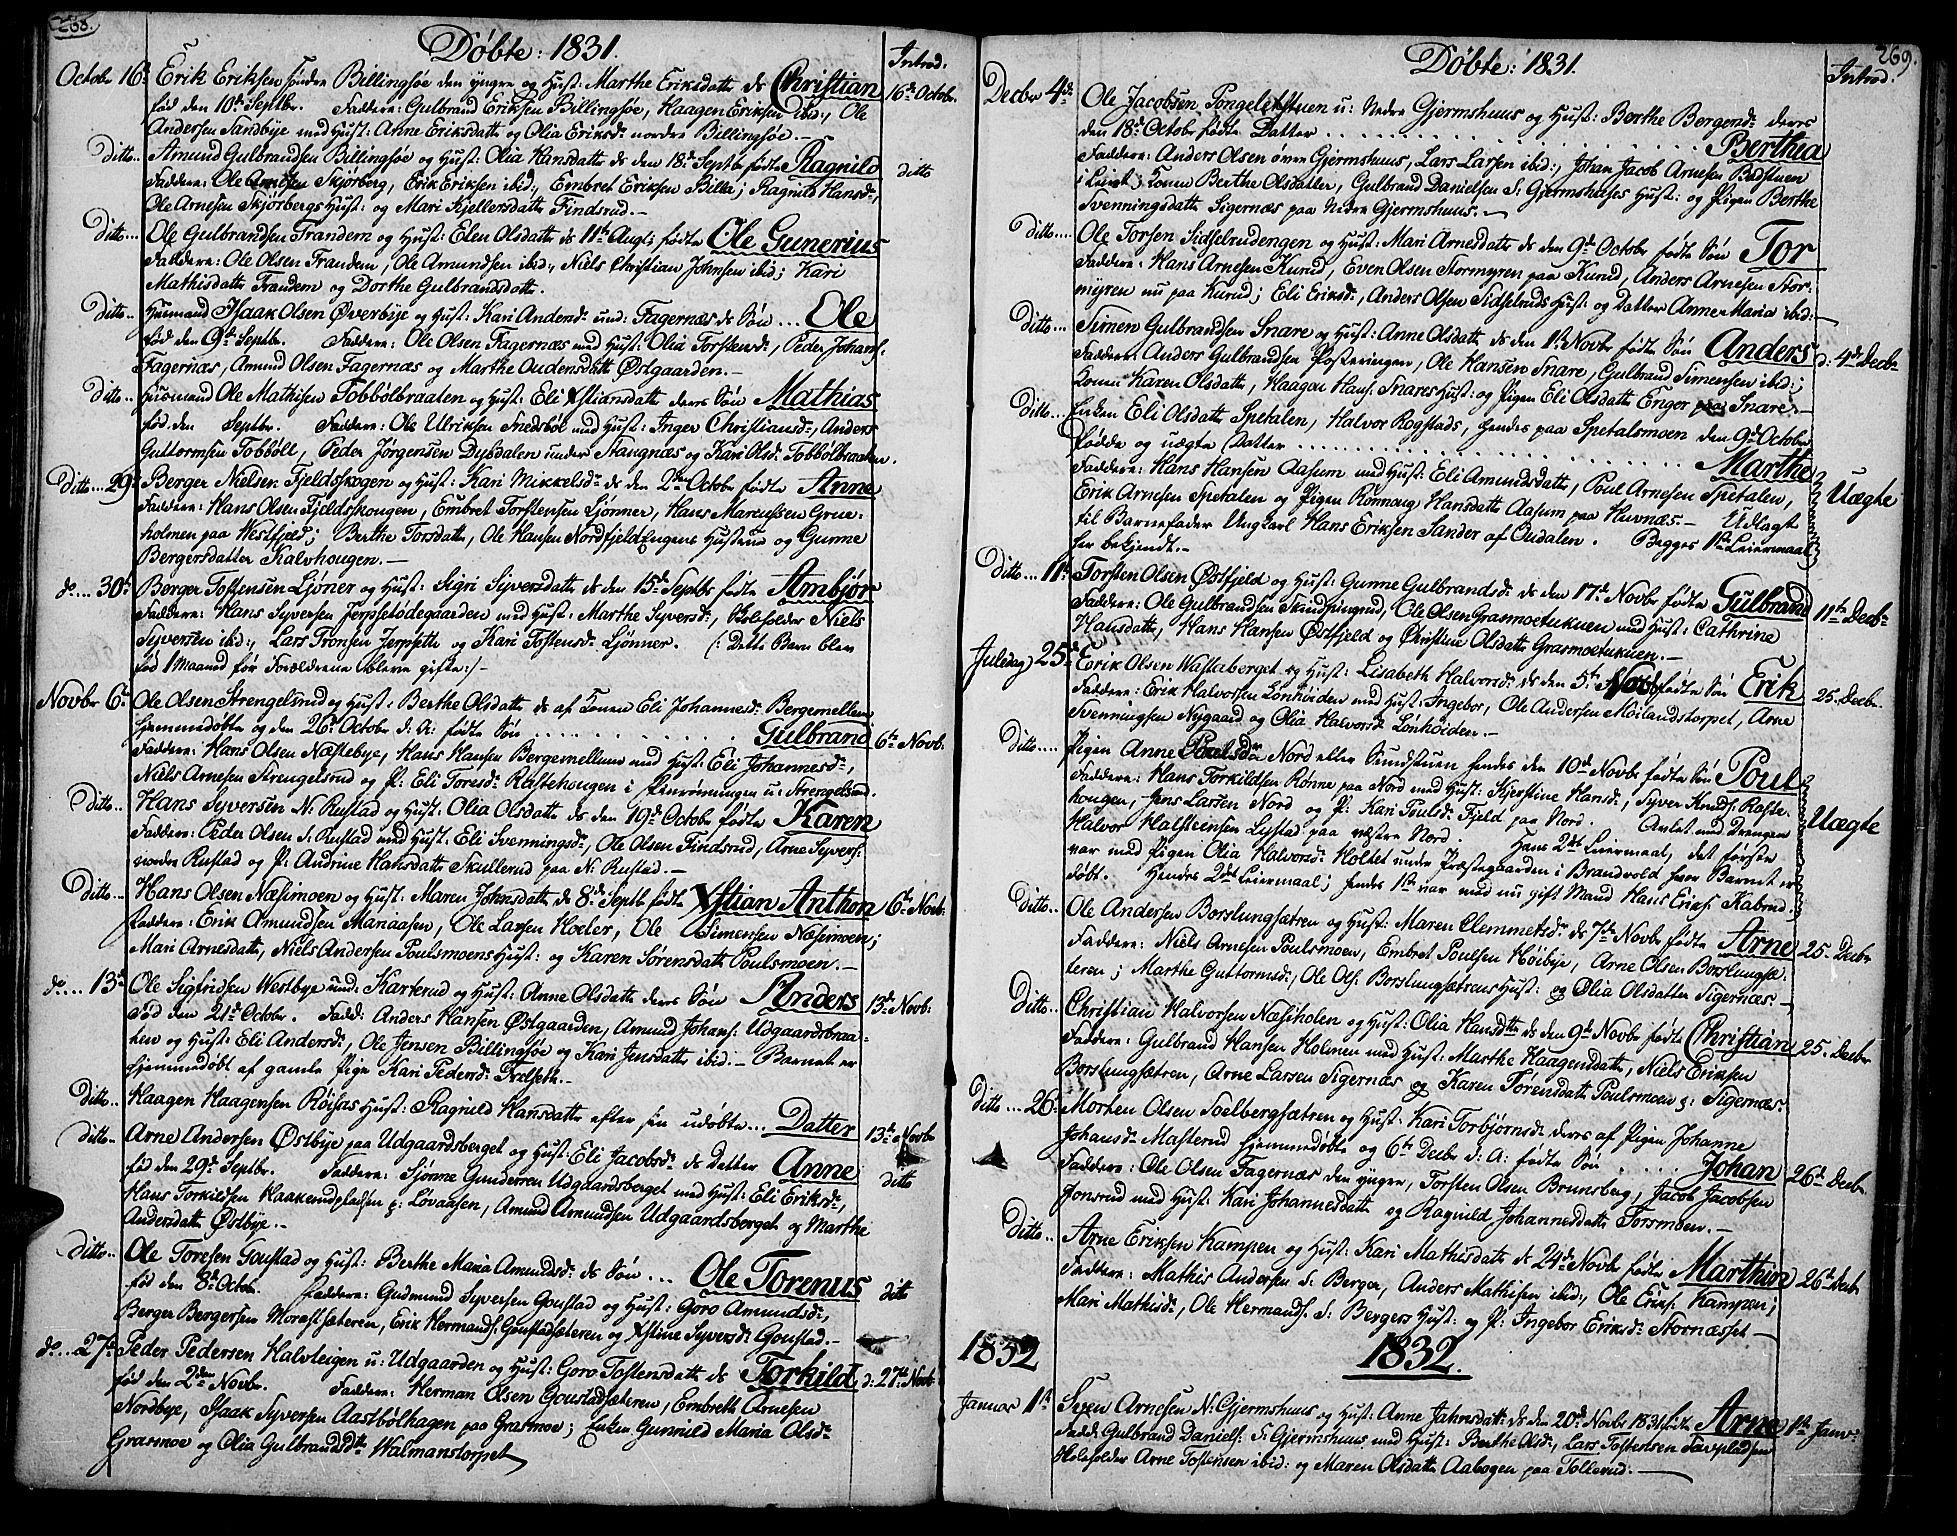 268.
Døbte: 1831.
Introd:
Octobr 16d Erik Eriksen søndre Billingsøe den yngre og Hust: Marthe Eriksdatte ds Christian 16de Octobr.
fød den 10de Septbr. Faddere: Gulbrand Eriksen Billingsøe, Haagen Eriksen ibid:, Ole
Andersen Sandbye med Hust: Anne Eriksdatte og Olia Eriksd. nordre Billingsøe.–
Ditto... Amund Gulbrandsen Billingsøe og Hust: Olia Hansdatte ds den 18de Septbr fødte Ragnild ditto
Faddere: Ole Skjørberg, Erik Eriksen ibid:, Embret Eriksen ; Ragnild Hansd:,
Ole Arnesen Skjørbergs Hust: og Mari Kjellersdatte Findsrud.–
Ditto... Ole Gulbrandsen Frandem og Hust: Elen Olsdatte ds 11te Augt: fødte Ole Gunerius
Faddere: Ole Olsen Frandem, Ole Amundsen ibid:, Niels Christian Johnsen ibid; Kari
Mathisdatte Frandem og Dorthe Gulbrandsdatte.
Ditto.. Huusmand Isaak Olsen Øverbye og Hust: Kari Andersd: und: Fagernæs ds Søn ... Ole
fød den 9de Septbr. Faddere: Ole Olsen Fagernæs med Hust: Olia Torstensd:, Peder Johans:
Fagernæs, Amund Olsen Fagernæs og Marthe Audensdatte Østgaarden.–
Ditto.. Huusmand Ole Mathisen Tobbølbraaten og Hust: Eli Xstiansdatte deres Søn Mathias
fød den Septbr. Faddere: Ole Ulriksen Snedsbøl med Hust: Inger Christiansd:, Anders
Guttormsen Tobbøl, Peder Jørgensen Dybdalen under Stangnæs og Kari Olsd: Tobbølbraaten.
Ditto... 29. Berger Nielsen Fjeldskogen og Hust: Kari Mikkelsd: ds den 2den Octobr fødte Anne
Faddere: Hans Olsen Fjeldskougen, Embret Torstensen Ljønner, Hans Marcussen Grue-
holmen paa Westfjeld; Berthe Torsdatte, Ole Hansen Nordfjeld Engens Hustrue og Gunne
Bergersdatter Kalvhougen.–
do.... 30. Berger Tostensen Ljøner og Hust: Sigri Syversdatte ds den 15de Septbr fødte Ambjør
Faddere: Hans Syversen Jerpsetødegaarden med Hust: Marthe Syversd:, Niels
Syversen ibid:, Lars Tronsen Jerpsette og Kari Tostensd: Ljønner. (: Dette Barn blev
fød 1 Maaned før Forældrene bleve gifte:)–
Novbr 6te Ole Olsen Strengelsrud og Hust: Berthe Olsdatte ds af Konen Eli Johannesd: Bergemellem
hjemmedøbte og den 26de Octobr d: A: fødte Søn ........ Gulbrand 6te Novb:
Faddere: Hans Olsen Næstebye, Hans Hansen Bergemellem med Hust: Eli Johannesd:,
Niels Arnesen Strengelsrud og P: Eli Toresd: Rastehougen i u: Strengelsrud.
Ditto.. Hans Syversen N: Rustad og Hust: Olia Olsdatte ds den 19de Octobr fødte Karen
Faddere: Peder Olsen S: Rustad med Hust: Eli Svenningsd:, Ole Olsen Findsrud, Arne Syvers:
nordre Rustad og P: Andrine Hansdatte Skullerud paa N: Rustad.–
Ditto... Hans Olsen Næsimoen og Hust: Maren Johnsdatte ds 8de Septb fødte Xstian Anthon 6te Novb:
Faddere: Erik Amundsen Mariaasen, Ole Larsen Hoeler, Ole Simensen Næsimoen;
Mari Arnesdatte, Niels Andersen Poulsmoens Hust: og Karen Sørensdatte Poulsmoen.–
do.... 13de Ole Sigfridsen Westbye und: Karterud og Hust: Anne Olsdatte deres Søn Anders 13de Novb:
Fød den 21de Octobr. Fadd: Anders Hansen Østgaarden, Amund Johans: Udgaardsbraa-
ten og Hust: Eli Andersd:, Ole Jensen Billingsøe og Kari Jensdatte ibid:– Barnet er
hjemmedøbt af gamle Pige Kari Pedersd:
Ditto.. Haagen Haagensen Røisas Hust: Ragnild Hansdatte efter sin udøbte... Datter 13de Novbr
Ditto.. Arne Andersen Østbye paa Udgaardsberget og Hust: Eli Jacobsd: ds Datter Anne ditto
fød den 29de Septbr. Faddere: Sjønne Gundersen Udgaardsberget med Hust: Eli Eriksd:,
Hans Torkildsen Haakenudpladsen p: Lovaasen, Amund Amundsen Udgaardsberget og Marthe
Andersdatte Østbye.–
Ditto.. Ole Torresen Goustad og Hust: Berthe Maria Amundsd: ds Søn ... Ole Torenus ditto
fød den 8de Octobr. Faddere: Gudmund Syversen Goustad og Hust: Goro Amundsd:,
Berger Bergersen Morastsæteren, Erik Hermands: Goustadsæteren og Xstine Syversd: Goustad.–
do... 27de Peder Pedersen Halvteigen u: Udgaarden og Hust: Goro Tostensdatte ds Torkild d: 27de Novbr
fød den 2den Novbr. Faddere: Herman Olsen Goustadsæteren, Embreth Arnesen
Nordbye, Isaak Syversen Aastbølhagen paa Grasmoe; Enken Gunnild Maria Olsd:
Grasmoe og Olia Gulbrandsdtte Walmanstorpet
269.
Døbte: 1831.
Introd.
Decbr 4de Ole Jacobsen u: Nedre Gjermshuus og Hust: Berthe Bergersd: deres
den 18de Octobr fødte Datter ............ Berthea
Faddere: Anders Olsen øvre Gjermshuus, Lars Larsen ibid:, Johan Jacob Arnesen Bødstuen
i Lunet; Konen Berthe Olsdatter, Gulbrand Danielsen S: Gjermshuses Hust: og Pigen Berthe
Svenningsdatte Sigernæs paa Nedre Gjermshuus.–
Ditto.... Ole Torsen Sidselrudengen og Hust: Mari Arnesdatte ds den 9de Octobr fødte Søn Tor
Faddere: Hans Arnesen Kurud, Even Olsen Stormyren paa Kurud, Anders Arnesen Stor-
myren nu paa Kurud; Eli Eriksd:, Anders Olsen Sidselruds Hust: og Datter Anne Maria ibid:–
Ditto... Simen Gulbrandsen Snare og Hust: Anne Olsdatte ds den 1te Novbr fødte Søn Anders d: 4de Decbr
Faddere: Anders Gulbrandsen Posteringen, Ole Hansen Snare, Gulbrand Simensen ibid:;
Konen Karen Olsdatte, Haagen Hans: Snares Hust: og Pigen Eli Olsdatte Enger paa Snare.–
Ditto.. Enken Eli Olsdatte Spetalen, Halvor Rogstads, hendes paa Spetalsmoen den 9de Octobr
fødde og uægte Datter ............ Marthe Uægte
Faddere: Hans Hansen Aasum med Hust: Eli Amundsdatte, Poul Arnesen Spetalen,
Erik Arnesen Spetalen og Pigen Rønnaug Hansdatte Aasum paa Huvnæs.– Udlagt
til Barnefader Ungkarl Hans Eriksen Sander af Oudalen. Begges 1te Leiermaal
har bekjendt.–
Ditto... 11te Torsten Olsen Østfjeld og Hust: Gunne Gulbrandsd: ds den 17de Novbr fødte Gulbrand 11te Decbr
Faddere: Ole Gulbrandsen Skindpungrud, Ole Olsen Grasmoetukuen med Hust: Cathrine
Hansdatte, Hans Hansen Østfjeld og Christine Olsdatte Grasmoetukuen.–
Juledag 25de Erik Olsen Wastaberget og Hust: Lisabeth Halvorsd: ds den 5te Novbr fødte Søn Erik 25. Decbr.
Faddere: Erik Halvorsen Lønhøiden med Hust: Ingebor, Ole Andersen Moilandstorpet, Arne
Svenningsen Nygaard og Olia Halvorsd: Lønhøiden.–
Ditto..... Pigen Anne Poulsdr Nord eller Sundstuen hendes den 10de Novbr fødte Søn Poul
Faddere: Hans Torkildsen Rønne paa Nord med Hust: Kjerstine Hansd:, Syver Knuds: Raste-
hougen, Jens Larsen Nord og P: Kari Pouls: Fjeld paa Nord. Avlet med Drengen Uægte
Halvor Halsteensen Lystad paa næstere Nord. Hans 2det Leiermaal, det første
var med Pigen Olia Halvorsd: Holtet under Præstegaarden i Brandvold hvor Barnet er
døbt. Hendes 2det Leiermaal; hendes 1te var med nu gift Mand Hans Eriks: Kabrud.
Ditto.. Ole Andersen Borslungsætren og Hust: Maren Clemmetsd: ds 7de Novbr fødte Arne 25. Decbr
Faddere: Niels Arnesen Poulsmoen, Embret Poulsen Høibye, Arne Olsen Borslungsæ-
teren; Marthe Guttormsd:, Ole Ols: Borslungsætrens Hust: og Olia Olsdatter Sigernæs.–
Ditto.. Christian Halvorsen Næsiholen og Hust: Olia Hansdtte ds den 9de Novbr fødte Christian 25. Decbr
Faddere: Gulbrand Hansen Holmen med Hust: Marthe Haagensdatte, Niels Eriksen
Borslungsætren, Arne Larsen Sigernæs og Karen Sørensdatte Poulsmoen p: Sigernæs.
Ditto ... 26. Morten Olsen Soelbergsætren og Hust: Kari Torbjørnsd: deres af Pigen Johanne
Johansd: Masterud hjemmedøbte og 6te Decbr d: A: fødte Søn ..... Johan 26de Decbr.
Faddere: Ole Olsen Fagernæs den yngre, Torsten Olsen Brunsberg, Jacob Jacobsen
Jonsrud med Hust: Kari Johannesdatte og Ragnild Johannesdatte Torsmoen.–
Ditto.. Arne Eriksen Kampen og Hust: Kari Mathisdatte ds 24de Novbr fødte Marthin 26de Decbr
Faddere: Mathis Andersen S: Berger, Anders Mathisen ibid:, Ole Eriks: Kampen;
Mari Mathisd:, Ole Hermands: S: Bergers Hust: og P: Ingebor Eriksd: Stornæsset–
1832 1832.
Januar 1te Sven Arnesen N: Gjermshuus og Hust: Anne Jahnsdatte ds den 20de Novbr 1831 fødte Arne 1te Janv:
Fadd: Gulbrand Daniels: S: Gjermshuus med Hust: Berthe Olsd:, Lars Tostensen
Arne Tostensen ibid: og Maren Olsdatte Aabogen paa Tollerud.–